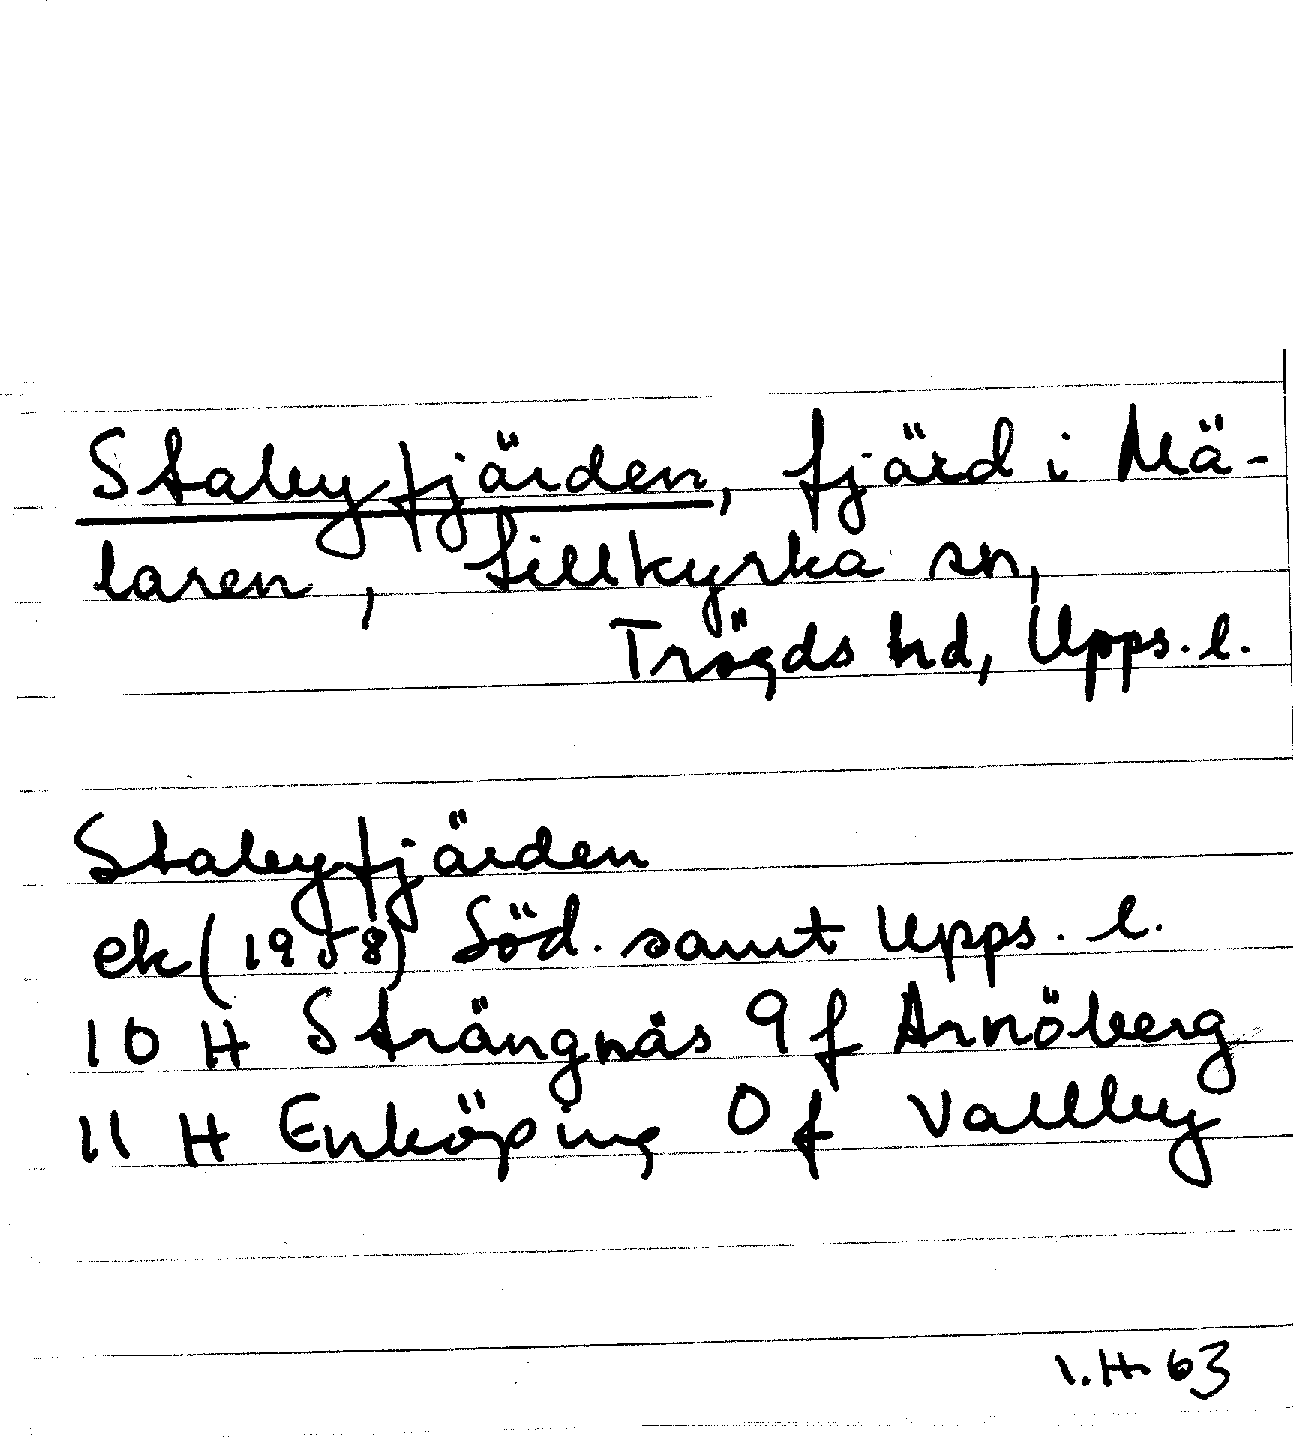 Stabyfjärden, fjärd i Mä-
laren, Lillkyrka sn,
Trögds hd, Upps. l.
Stabyfjärden
ek (1958) Söd. samt Upps. l.
10 H Strängnäs 9 f Arnöberg
11 H Enköping 0 f Vallby
I.H. 63